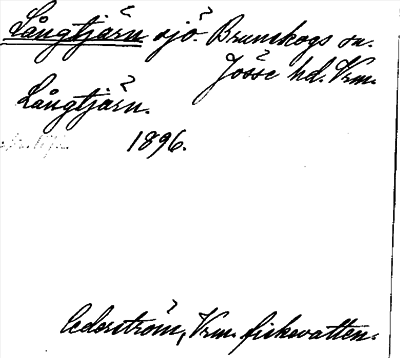 Långtjärn sjö. Brunskogs sn.
Jösse hd. Vrm.
Långtjärn.
1896.
Cederström, Vrm. fiskevatten.